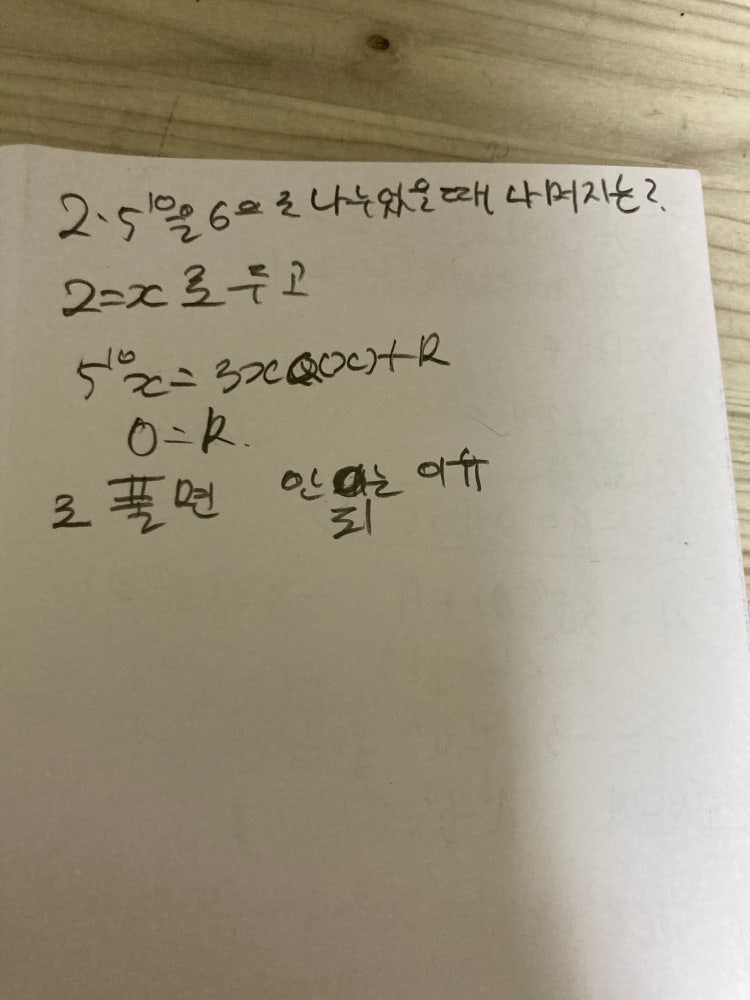 2·5¹⁰을 6으로 나누었을때 나머지는?
2=x로 두고
5¹⁰x=3xQ(x)+R
0=R.
로 풀면 안 되는 이유